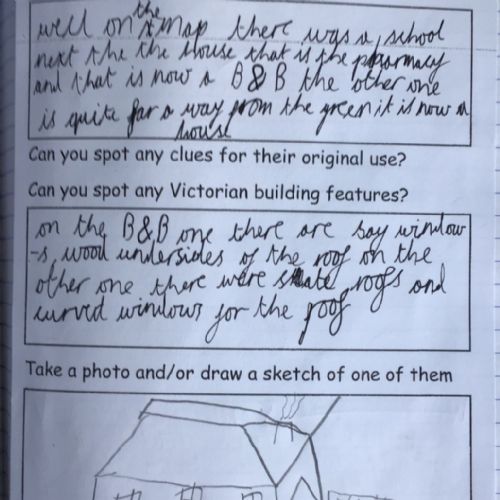 well on the map there was a school
next the the house that is the pharmacy
and that is now a B&B the other one
is quite far a way from the green it is now a
house
Can you spot any clues for their original use?
Can you spot any Victorian building features?
on the B&B one there are bay window
-s, wood undersides of the roof on the
other one there were slate roofs and
curved windows for the roof
Take a photo and/or draw a sketch of one of them